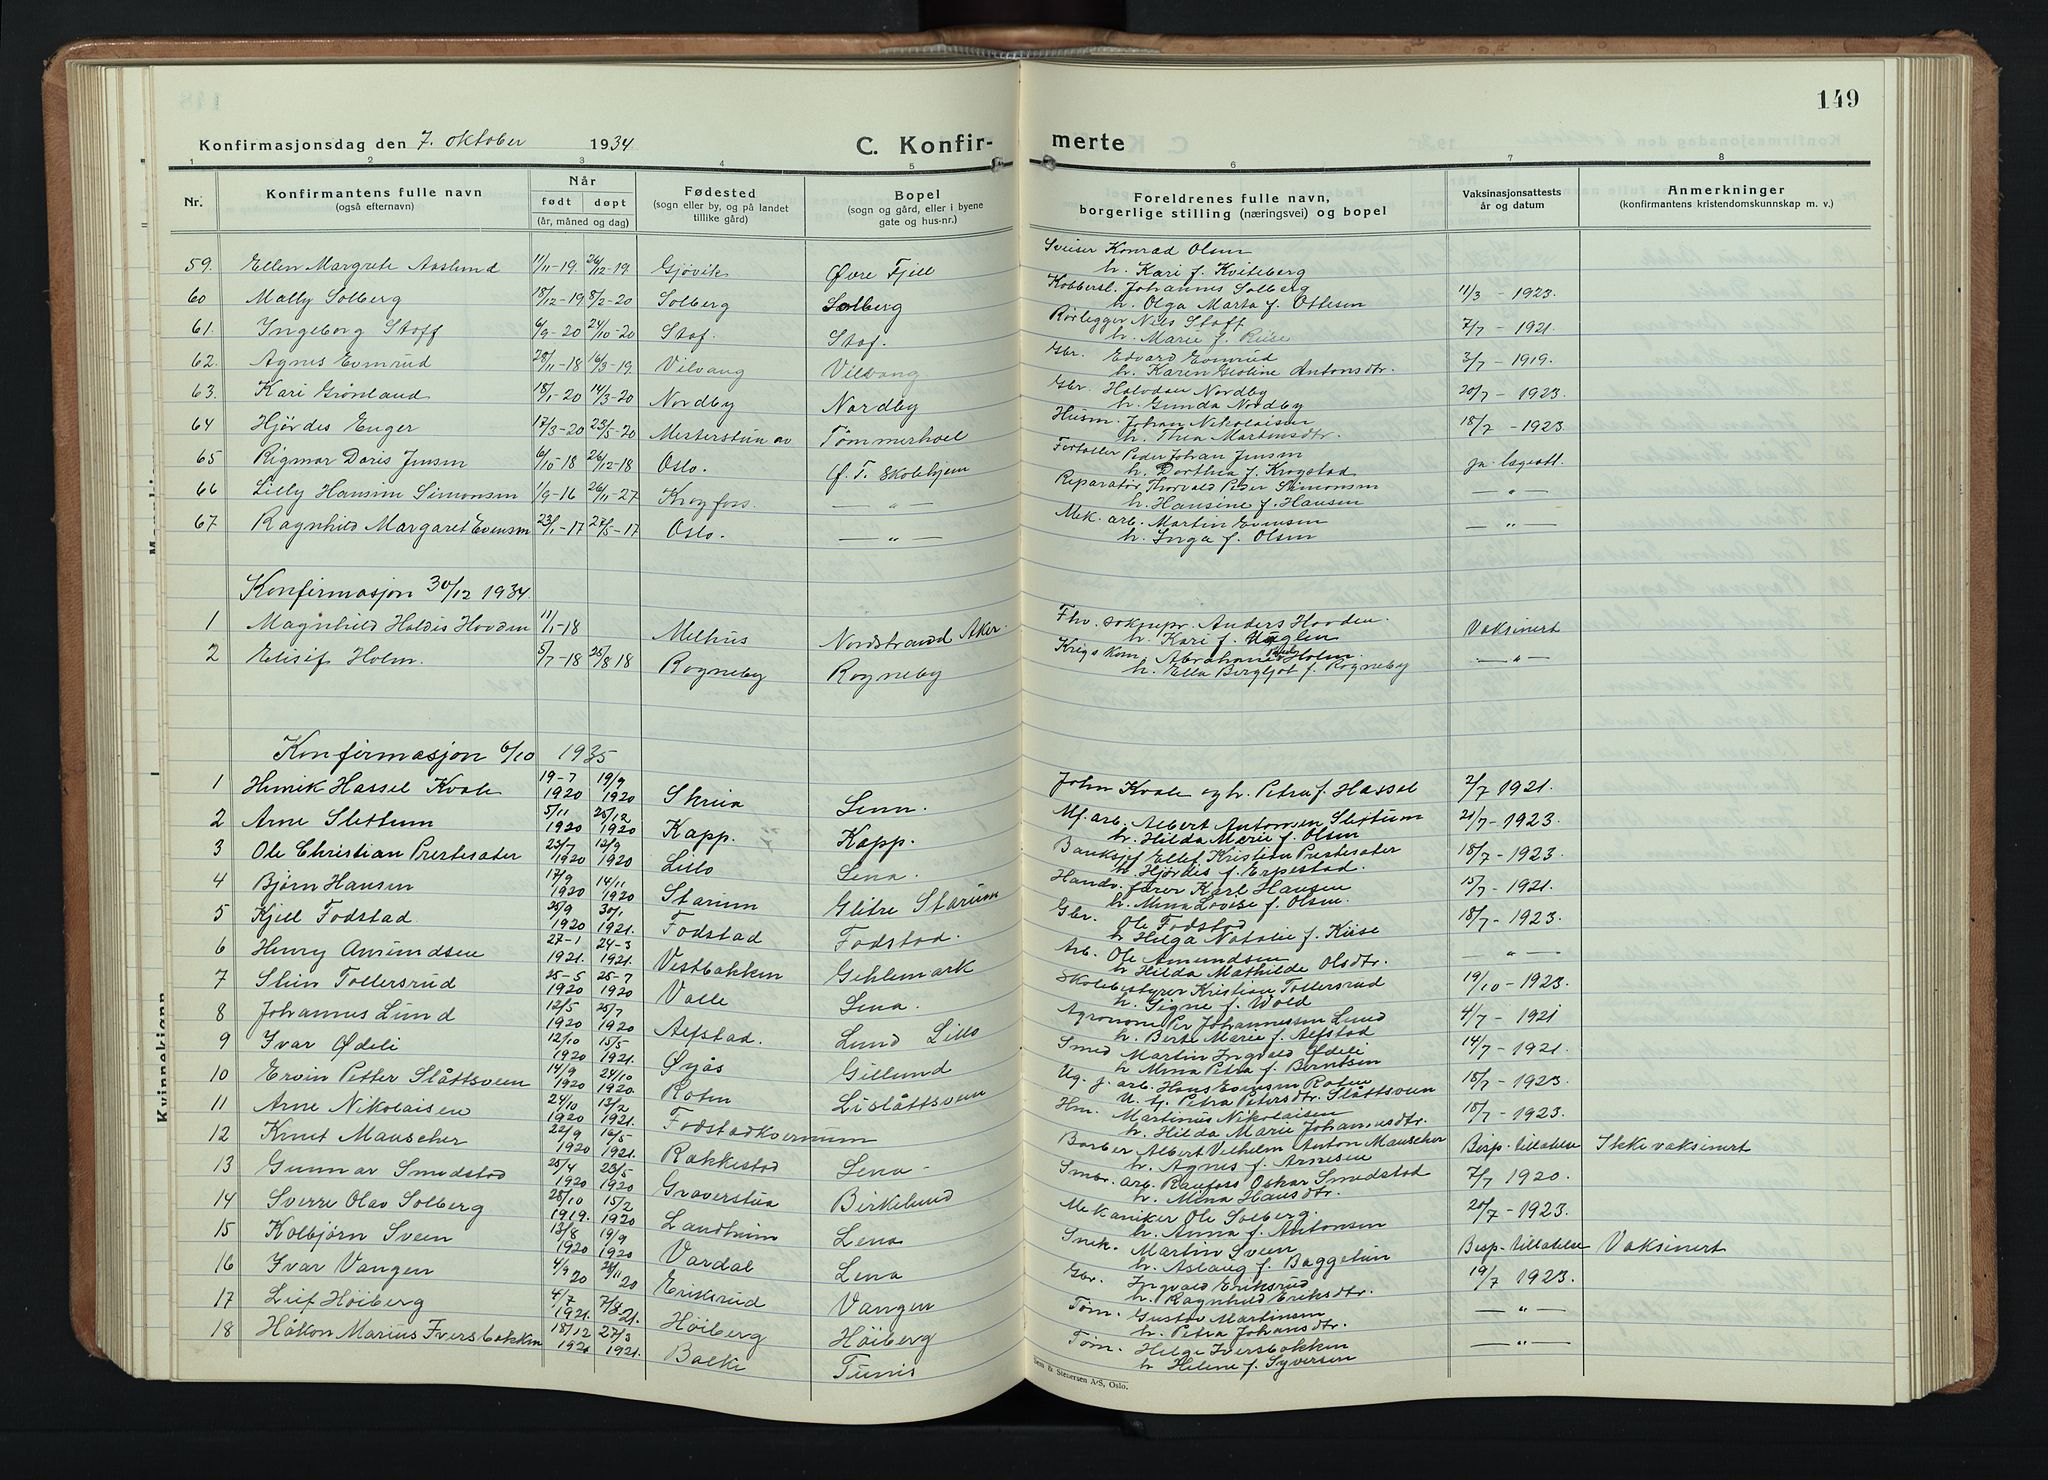 149
Konfirmasjonsdag den 7. oktober 1934
C. Konfirmerte
1 2 3 4 5 6 7 8
Nr. Konfirmantens fulle navn (også efternavn) Når født døpt (år, måned og dag) Fødested (sogn eller by, og på landet tillike gård) Bopel (sogn og gård, eller i byene gate og hus-nr.) Foreldrenes fulle navn, borgerlige stilling (næringsvei) og bopel Vaksinasjonsattests år og datum Anmerkninger (konfirmantens kristendomskunnskap m. v.)
59. Ellen Margrete Aaslund 11/11-19. 26/12-19. Gjövik Øvre Fjell Sveiser Konrad Olsen h. Kari f. Kviteberg
60 Mally Solberg 18/12-19 8/2-20 Solberg Solberg Kobbersl. Johannes Solberg h. Olga Marta f. Ottesen 11/3 - 1923.
61. Ingeborg Stoff 6/9-20 24/10-20 Stof. Stof. Rørlegger Nils Stoff h. Marie f. Riise 7/7 - 1921.
62. Agnes Evenrud 28/11-18 16/3-19. Vilvang Vilvang Gbr. Edvard Evenrud h. Karen Geoline Antonsdtr. 3/7 - 1919.
63. Kari Grönland 18/1-20 14/3-20 Nordby Nordby Gbr. Halvdan Nordby h. Gunda Nordby 20/7 - 1923.
64 Hjördes Enger 17/3-20 23/5-20 Mesterstua av Tömmerhoel Husm. Johan Nikolaisen h. Thea Martinsdtr. 18/7 - 1923.
65 Rigmor Doris Jensen 6/10-18 26/12-18 Oslo. Ø. T. Skolehjem Fortoller Peder Johan Jensen h. Dorthea f. Krogstad ja. lægeatt.
66 Lilly Hansine Simonsen 1/9-16 26/11-27 Krogfoss. — " — Reparatør Thorvald Peder Simonsen h. Hansine f. Hansen — " —
67 Ragnhild Margaret Evensen 23/1-17 27/5-17 Oslo. — " — Mek. arb. Martin Evensen h. Inga f. Olsen — " —
Konfirmasjon 30/12 1934
1 Magnhild Haldis Hovden 11/1-18 Melhus Nordstrand Aker. Fhv. soknepr. Anders Hovden. h. Kari f. Uglen Vaksinert
2 Elisif Holm. 5/7-18 25/8 18 Rogneby Rogneby Krigskom. Abraham Holm. h. Ella Bergljot f. Rogneby — " —
Konfirmasjon 6/10 1935
1 Henrik Hassel Kvale 19-7 1920 19/9 1920 Skreia Lena. John Kvale og h. Petra f. Hassel 2/7 1921.
2 Arne Slettum 5/11 1920 25/12 1920 Kapp. Kapp. Mf. arb. Albert Antonsen Slettum h. Hilda Marie f. Olsen 20/7 - 1923.
3 Ole Christian Prestesæter 23/7 1920 12/9 1920 Lillo Lena. Banksjef Ellef Kristian Prestesæter h. Hjördis f. Erpestad. 18/7 - 1923.
4 Björn Hansen 17/9 1920 14/11 1920 Starum Glitre Starum Handv. fører Karl Hansen h. Mina Lovise f. Olsen. 15/7 - 1921.
5 Kjell Fodstad 25/9 1920 30/1 1921. Fodstad Fodstad. Gbr. Ole Fodstad h Helga Natalie f. Kise 18/7 - 1923.
6 Henry Amundsen 27-1 1921. 24-3 1921. Vestbakken Gehlemark Arb. Ole Amundsen h Hilda Mathilde Olsdtr. — " —
7 Stein Tollersrud 25-5 1920 25-7 1920 Valle Lena. Skolebestyrer Kristian Tollersrud h. Signe f. Wold 19/10 - 1923.
8 Johannes Lund 12/5 1920 25/7 1920 Alfstad. Lund Lillo Agronom Per Johannessen Lund h. Berte Marie f. Alfstad 4/7 - 1921
9 Ivar Ødeli 12/10 1920 15/5 1921. Øyås Gillund Smed Martin Ingvald Ødeli h Mina Petra f. Berntsen 14/7 - 1921.
10 Ervin Petter Slåttsveen 14/9 1920 24/10 1920. Roten Lislåttsveen Ug. j. arb. Hans Evensen Roten U. tj. Petra Petersdtr. Slåttsveen 18/7 - 1923.
11 Arne Nikolaisen 24/10 1920 13/2 1921. Fodstadkvernum Hm. Martinus Nikolaisen h. Hilda Marie Johannesdtr. 18/7 - 1923.
12 Knut Mauscher 22/9 1920 16/5 1921. Rakkestad Lena - Barber Albert Vilhelm Anton Mauscher h. Agnes f. Arnesen Bisp-tillatelse Ikke vaksinert
13 Gunnar Smedstad 25/4 1920 23/5 1920 Graverstua Birkelund Smbr. arb. Raufoss Oskar Smedstad h. Mina Hansdtr. 7/7 1920.
14 Sverre Olav Solberg 28/10 1919. 15/2 1920 Landheim Lena Mekaniker Ole Solberg. h. Anna f. Antonsen 20/7 - 1923.
15 Kolbjörn Sveen 13/8 1920 19/9 1920 Vardal Lena Snek. Martin Sveen h. Aslaug f. Baggetun Bisp-tillatelse Vaksinert
16 Ivar Vangen 4/9 20 28/11 20 Eriksrud Vangen Gbr. Ingvald Eriksrud h. Ragnhild Eriksdtr. 19/7 1923.
17 Leif Höiberg 4/7 1921. 7/8-21. Höiberg Höiberg Töm. Gustav Martinsen h. Petra Johansdtr. — " —
18 Håkon Marius Iversbakken 18/12 1920 27/3 1921. Balke Tunis Töm. Helge Iversbakken h Helene f. Syversen — " —
Sem & Stenersen A/S, Oslo.
Kvinnekjønn